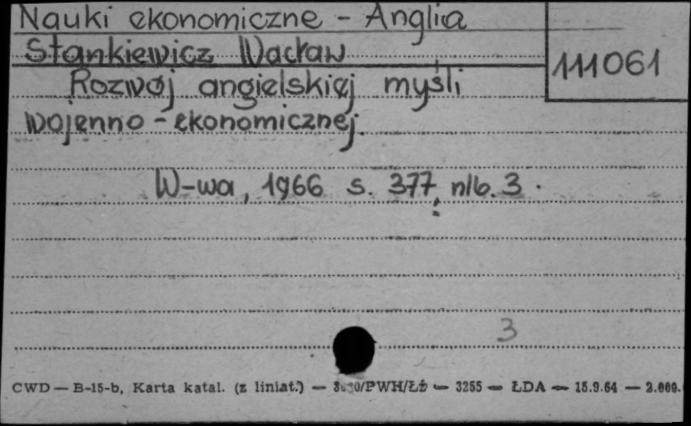 Nauki ekonomiczne - Anglia
Stankiewicz Wacław
111061
Rozwój angielskiej myśli
wojenno-ekonomicznej.
W-wa, 1966 s. 377, nlb. 3.
3
CWD — B-15-b, Karta katal. (z liniat.) — PWH/Łź — 3255 — ŁDA — 15.9.64 — 2.000.